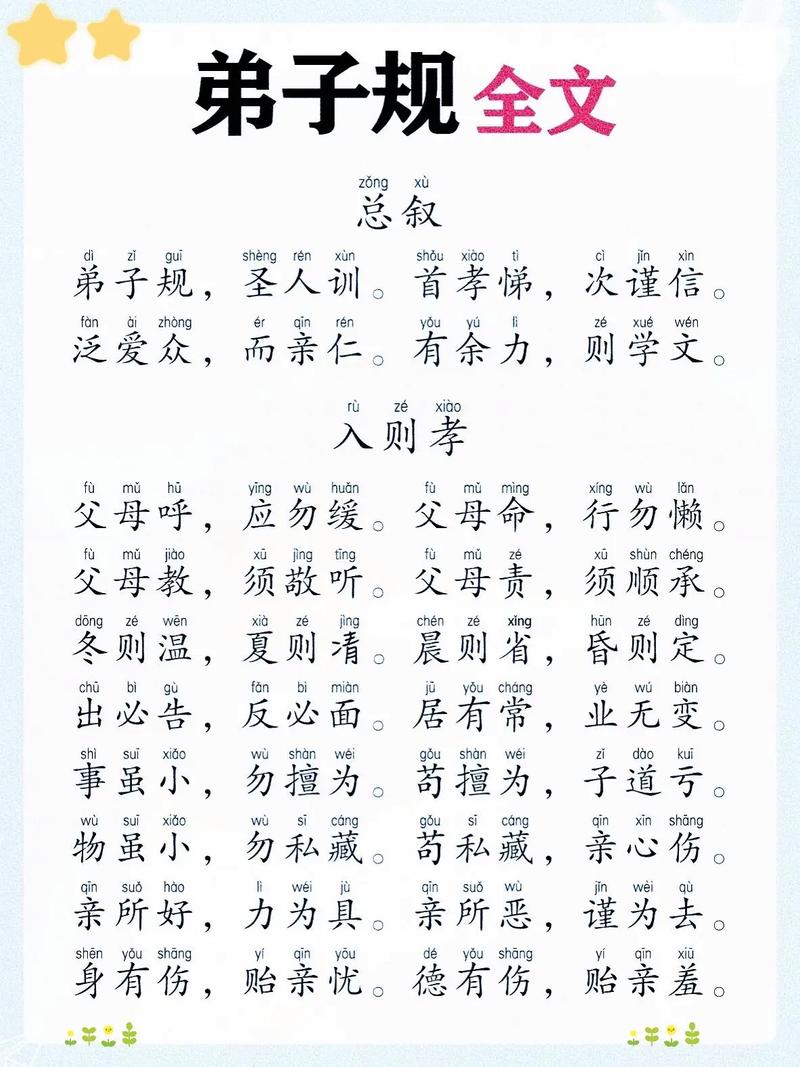 弟子规 全文
zǒng xù
总叙
dì zǐ guī shèng rén xùn shǒu xiào tì cì jǐn xìn
弟子规，圣人训。首孝悌，次谨信。
fàn ài zhòng ér qīn rén yǒu yú lì zé xué wén
泛爱众，而亲仁。有余力，则学文。
rù zé xiào
入则孝
fù mǔ hū yīng wù huǎn fù mǔ mìng xíng wù lǎn
父母呼，应勿缓。父母命，行勿懒。
fù mǔ jiào xū jìng tīng fù mǔ zé xū shùn chéng
父母教，须敬听。父母责，须顺承。
dōng zé wēn xià zé jìng chén zé xǐng hūn zé dìng
冬则温，夏则凊。晨则省，昏则定。
chū bì gù fǎn bì miàn jū yǒu cháng yè wú biàn
出必告，反必面。居有常，业无变。
shì suī xiǎo wù shàn wéi gǒu shàn wéi zǐ dào kuī
事虽小，勿擅为。苟擅为，子道亏。
wù suī xiǎo wù sī cáng gǒu sī cáng qīn xīn shāng
物虽小，勿私藏。苟私藏，亲心伤。
qīn suǒ hào lì wéi jù qīn suǒ wù jǐn wèi qù
亲所好，力为具。亲所恶，谨为去。
shēn yǒu shāng yí qīn yōu dé yǒu shāng yí qīn xiū
身有伤，贻亲忧。德有伤，贻亲羞。